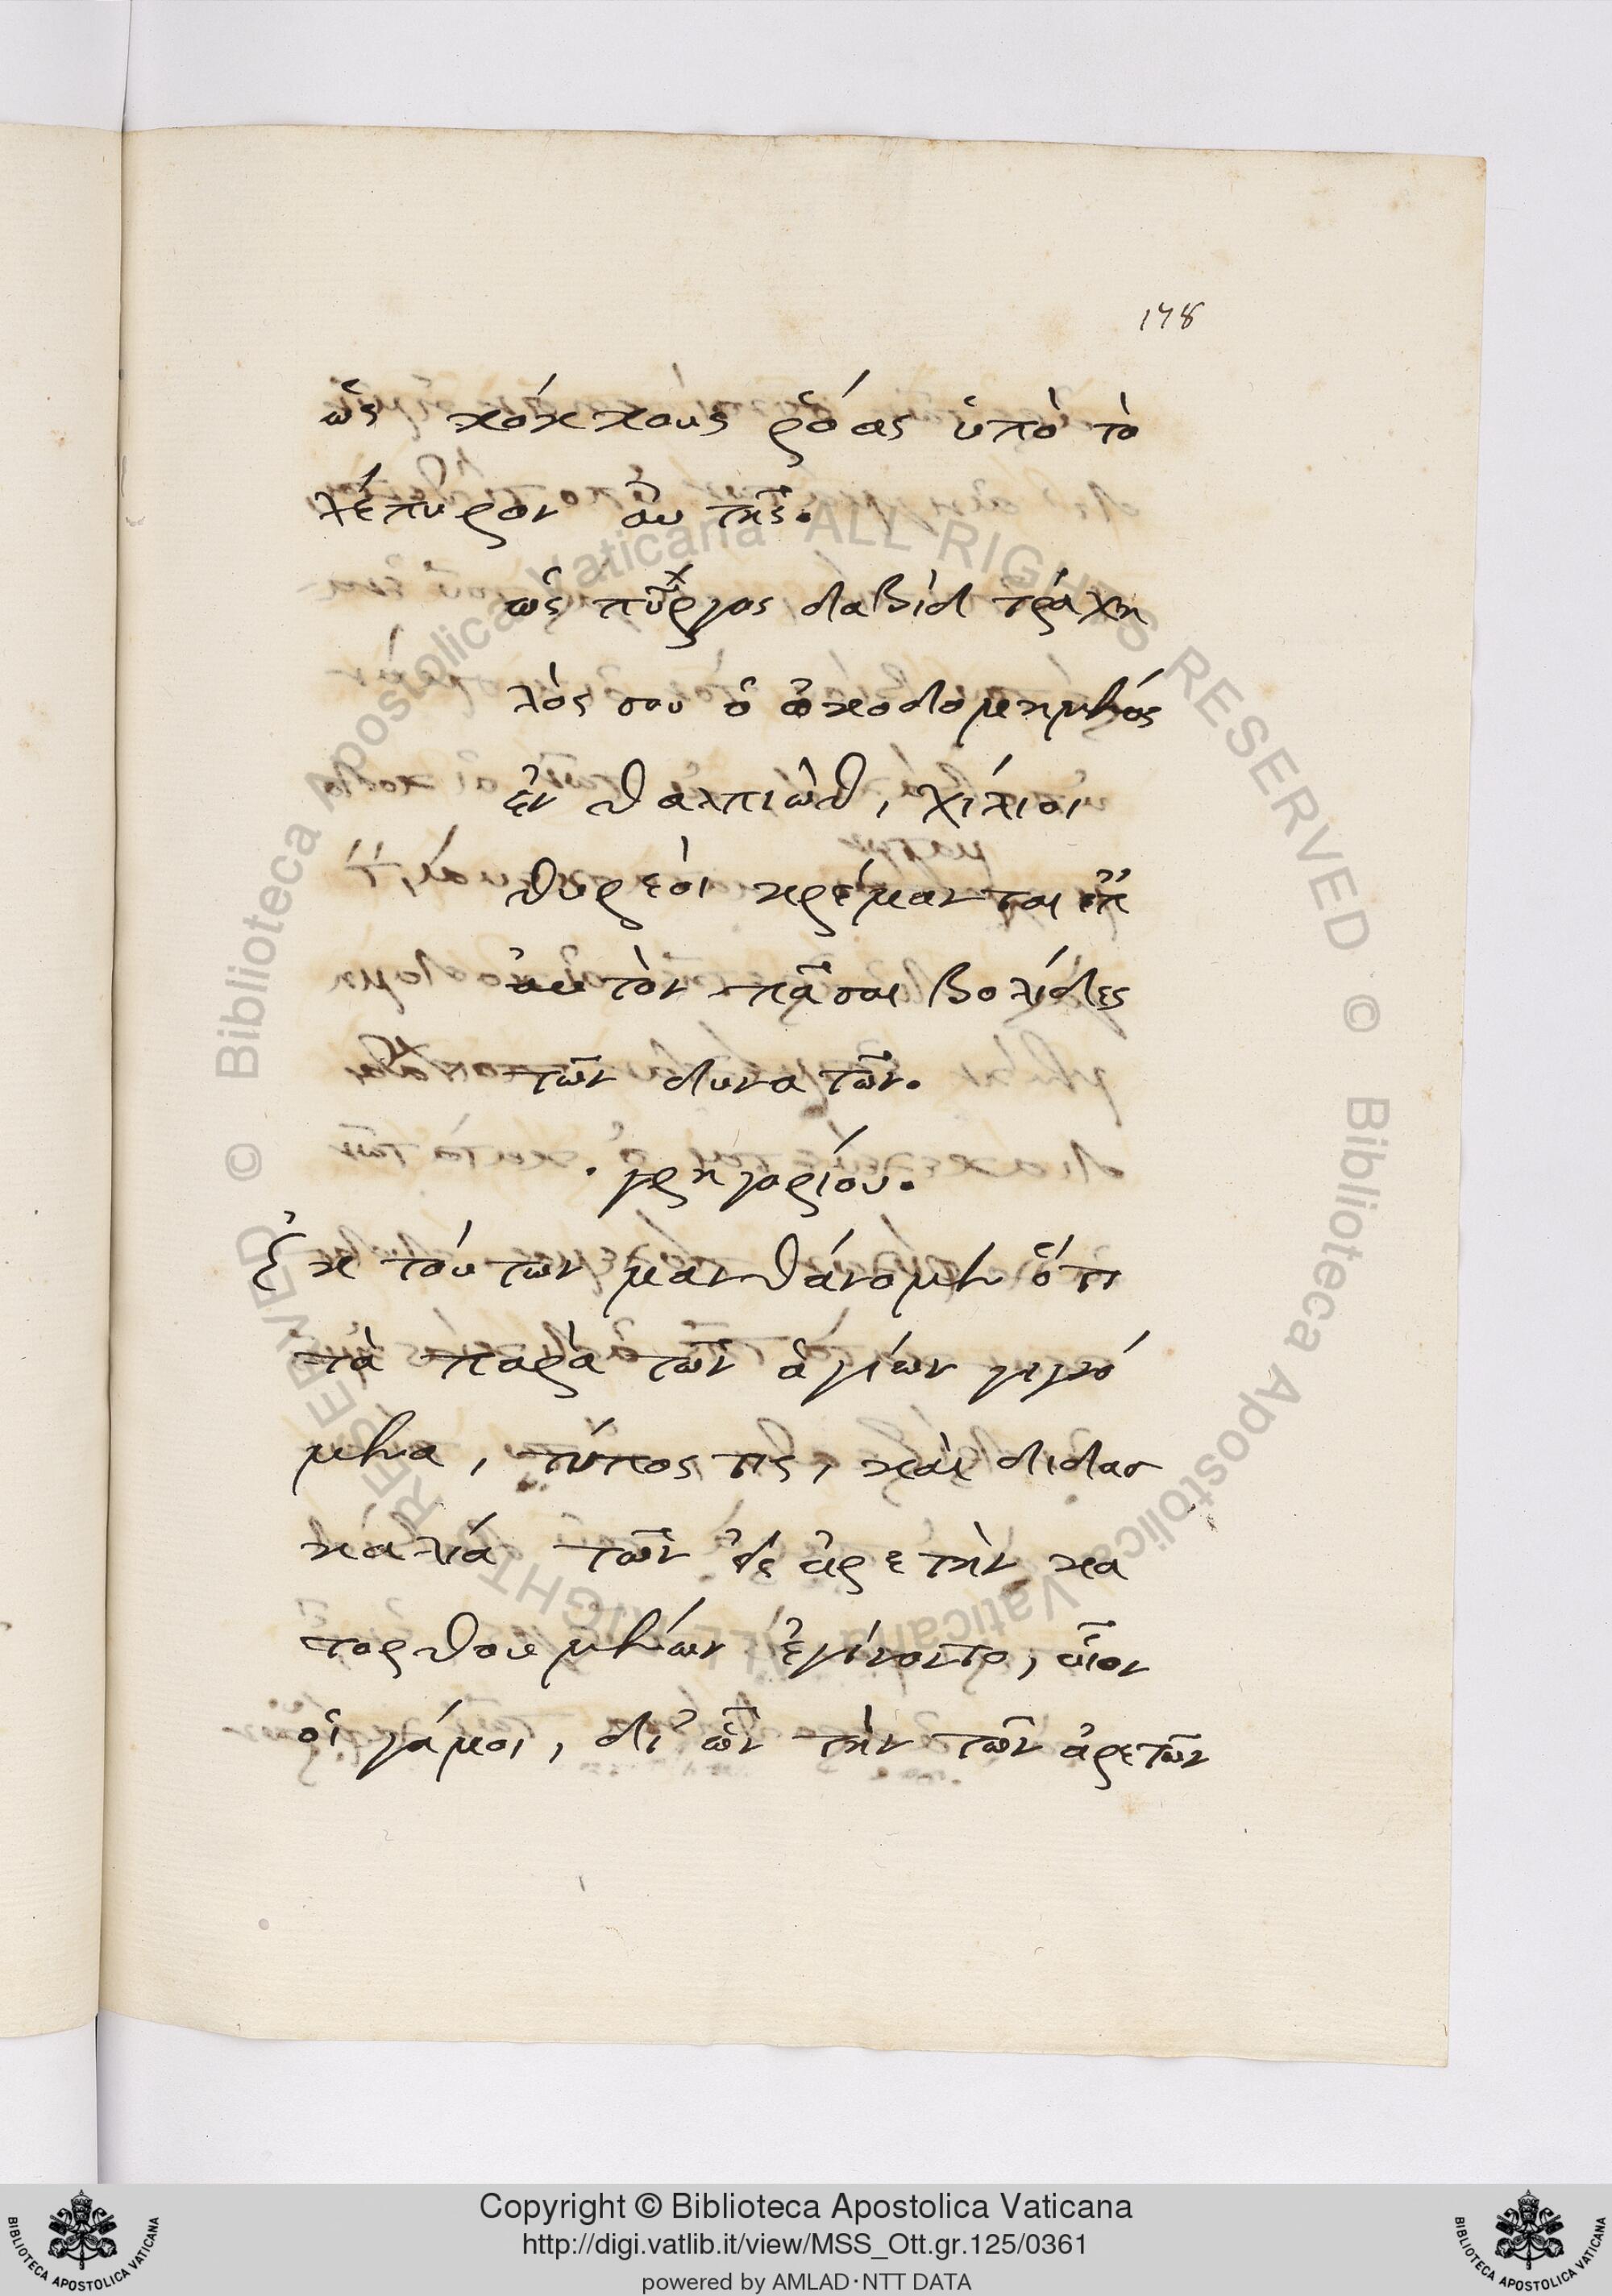 178
ὡς κόκκους ῥόας ὑπὸ τὸ
λέπυρον αὐτῆς.
ὡς πῦργος δαβὶδ τράχη
λός σου ὁ ᾠκοδομημένος
ἐν θαλπιὼθ, χίλιοι
θυρεὸι κρέμανται ἐπ
ἀυτὸν πᾶσαι βολίδες
τῶν δυνατῶν.
. γρηγορίου.
Ἐκ τόυτων μανθάνομεν ὅτι
τὰ παρὰ τῶν ἁγίων γιγνό
μενα, τύπος τις, καὶ διδασ
καλία τῶν ἐς ἀρετὴν κα
τορθουμένων ἐγίνοντο, οἷον
οἱ γάμοι, δι' ὧν τὴν τῶν ἀρετῶν
© Biblioteca Apostolica Vaticana ALL RIGHTS RESERVED
© Biblioteca Apostolica Vaticana ALL RIGHTS RESERVED
Copyright © Biblioteca Apostolica Vaticana
http://digi.vatlib.it/view/MSS_Ott.gr.125/0361
powered by AMLAD·NTT DATA
BIBLIOTECA APOSTOLICA VATICANA
BIBLIOTECA APOSTOLICA VATICANA